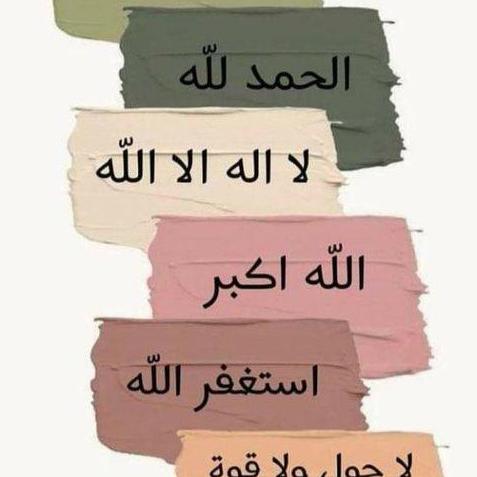 الحمد لله
لا اله الا الله
الله اكبر
استغفر الله
لا حول ولا قوة